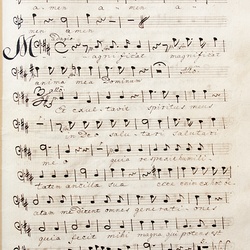 a - men a - - - men a -
men amen
M - - - agnificat magnificat
anima mea Dominum
Et exultavit spiritus meus
in Deo salutari salutari
me - o quia respexit humili
tatem ancillae suae ecce enim ex hoc be
atam me dicent omnes generationes
quia fecit mihi magna qui potens est